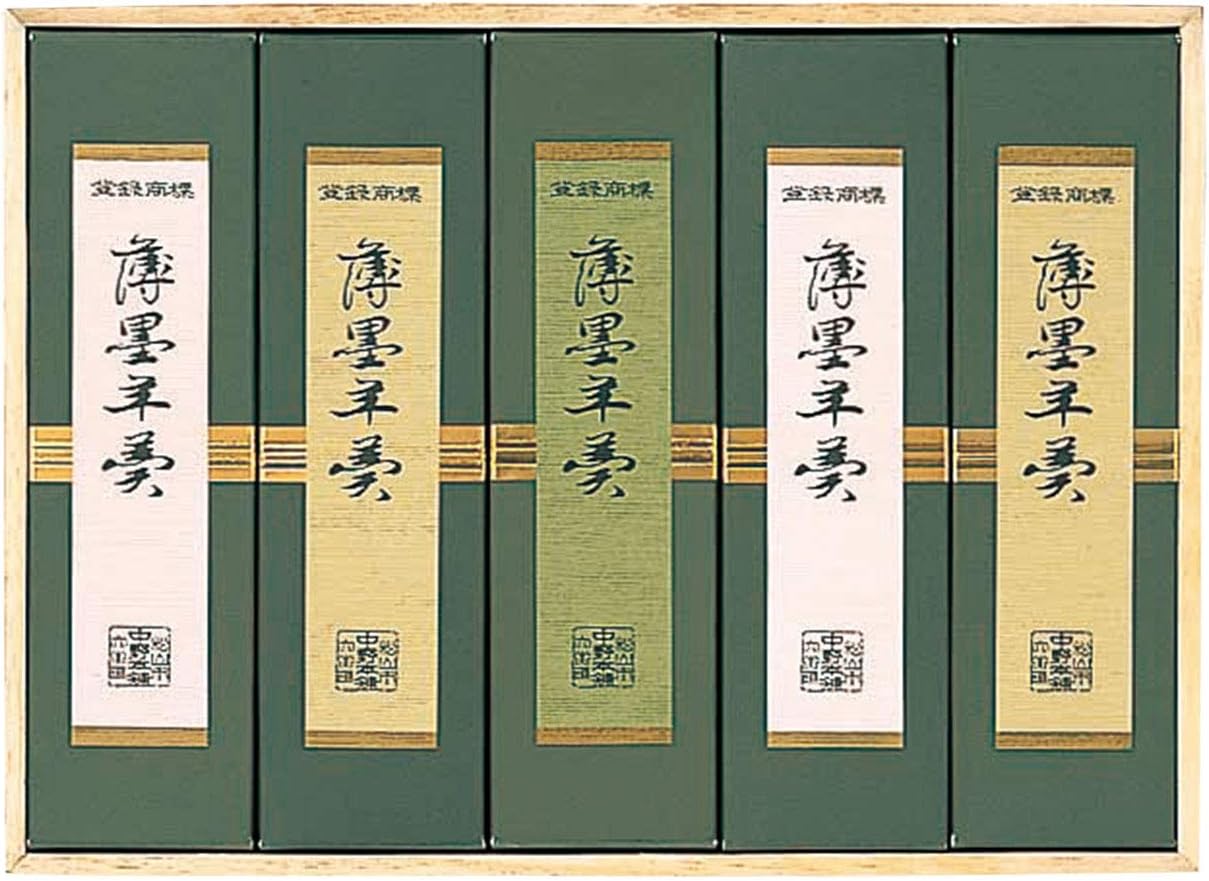 登録商標
薄墨羊羹
松山市
中野本舗
登録商標
薄墨羊羹
松山市
中野本舗
登録商標
薄墨羊羹
松山市
中野本舗
登録商標
薄墨羊羹
松山市
中野本舗
登録商標
薄墨羊羹
松山市
中野本舗